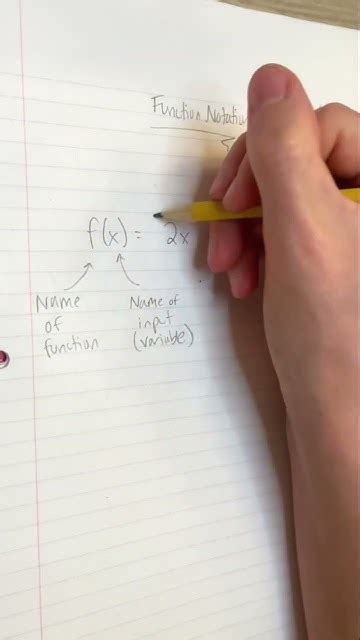 Function Notation
f(x) = 2x
Name
of
function
Name of
input
(variable)